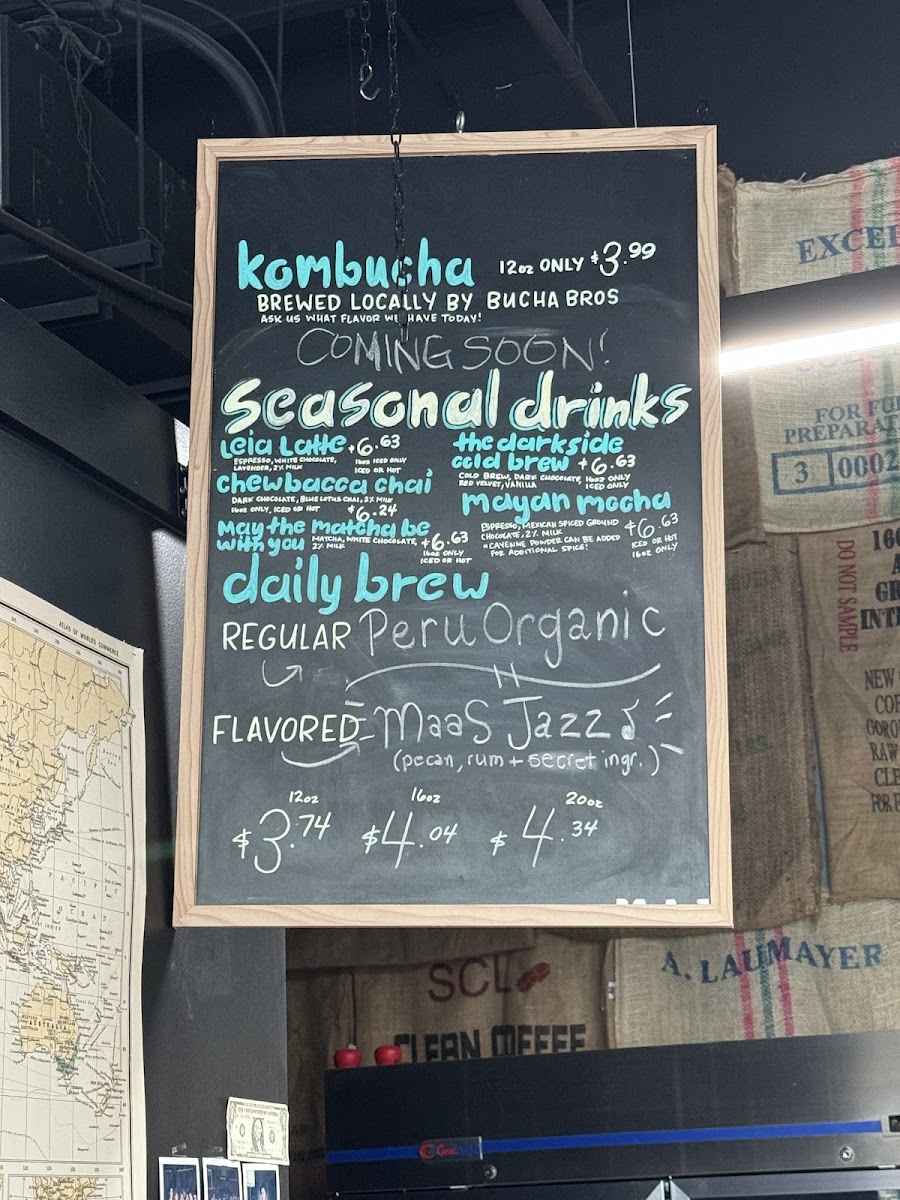 kombucha 12oz ONLY $3.99
BREWED LOCALLY BY BUCHA BROS
ASK US WHAT FLAVOR WE HAVE TODAY!
COMING SOON!
seasonal drinks
Leia Latte $6.63
ESPRESSO, WHITE CHOCOLATE,
LAVENDER, 2% MILK
16oz ICED ONLY
ICED OR HOT
chewbacca chai
DARK CHOCOLATE, BLUE LOTUS CHAI, 2% MILK
16oz ONLY, ICED OR HOT $6.24
May the matcha be
with you
MATCHA, WHITE CHOCOLATE,
2% MILK
$6.63
16oz ONLY
ICED OR HOT
the darkside
cold brew $6.63
COLD BREW, DARK CHOCOLATE,
RED VELVET, VANILLA
16oz ONLY
ICED ONLY
mayan mocha
ESPRESSO, MEXICAN SPICED GROUND
CHOCOLATE, 2% MILK
*CAYENNE POWDER CAN BE ADDED
FOR ADDITIONAL SPICE!
$6.63
ICED OR HOT
16oz ONLY
daily brew
REGULAR Peru Organic
FLAVORED Maas Jazz
(pecan, rum + secret ingr.)
12oz 16oz 20oz
$3.74 $4.04 $4.34
EXCEL
FOR FU
PREPARAT
3 0002
DO NOT SAMPLE
NEW
RAW
CLE
A. LAUMAYER
SCL
CLEAN COFFEE
ATLAS OF WORLD'S COMMERCE
PACIFIC
OCEAN
AUSTRALIA